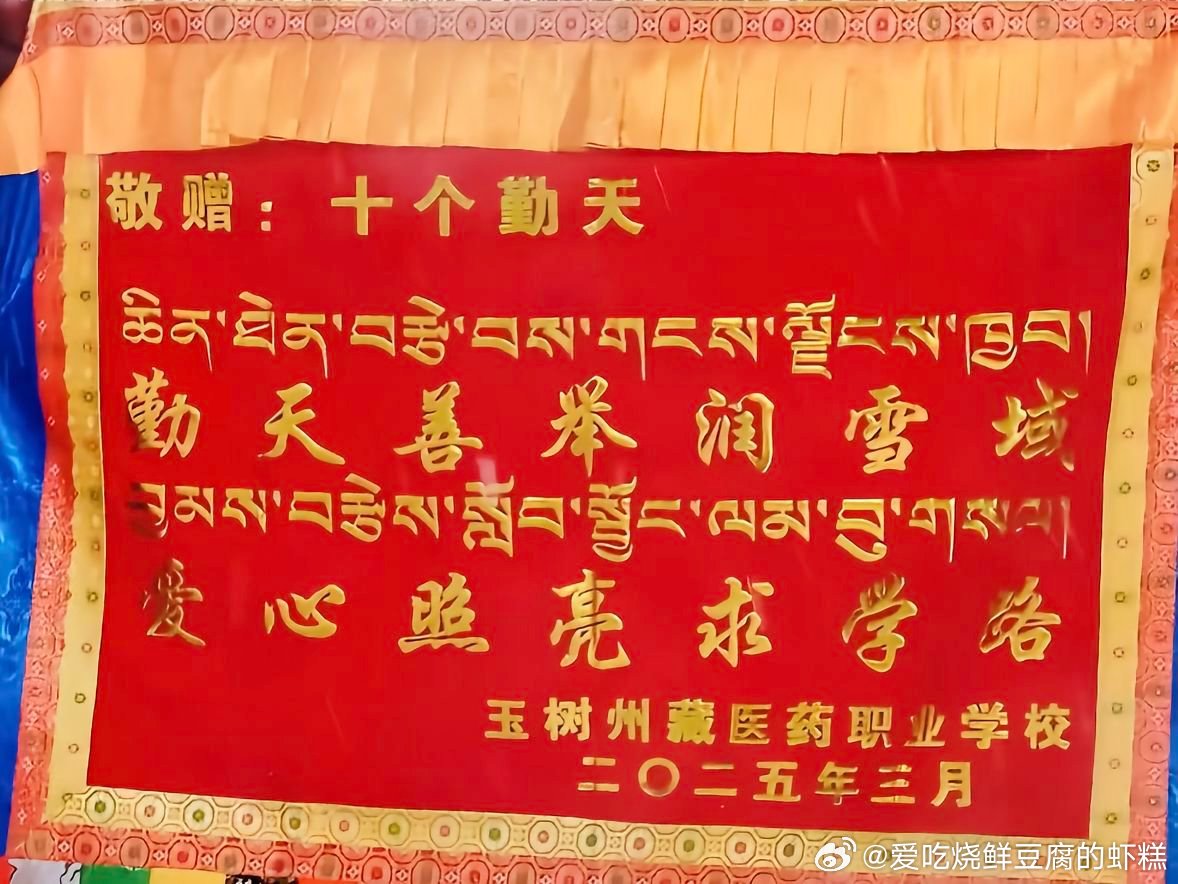 敬赠：十个勤天
ཆིན་ཐེན་བརྩེ་བས་གངས་ལྗོངས་ཁྱབ།
勤天善举润雪域
བྱམས་བརྩེས་སློབ་སྦྱོང་ལམ་བུ་གསལ།
爱心照亮求学路
玉树州藏医药职业学校
二〇二五年三月
@爱吃烧鲜豆腐的虾糕